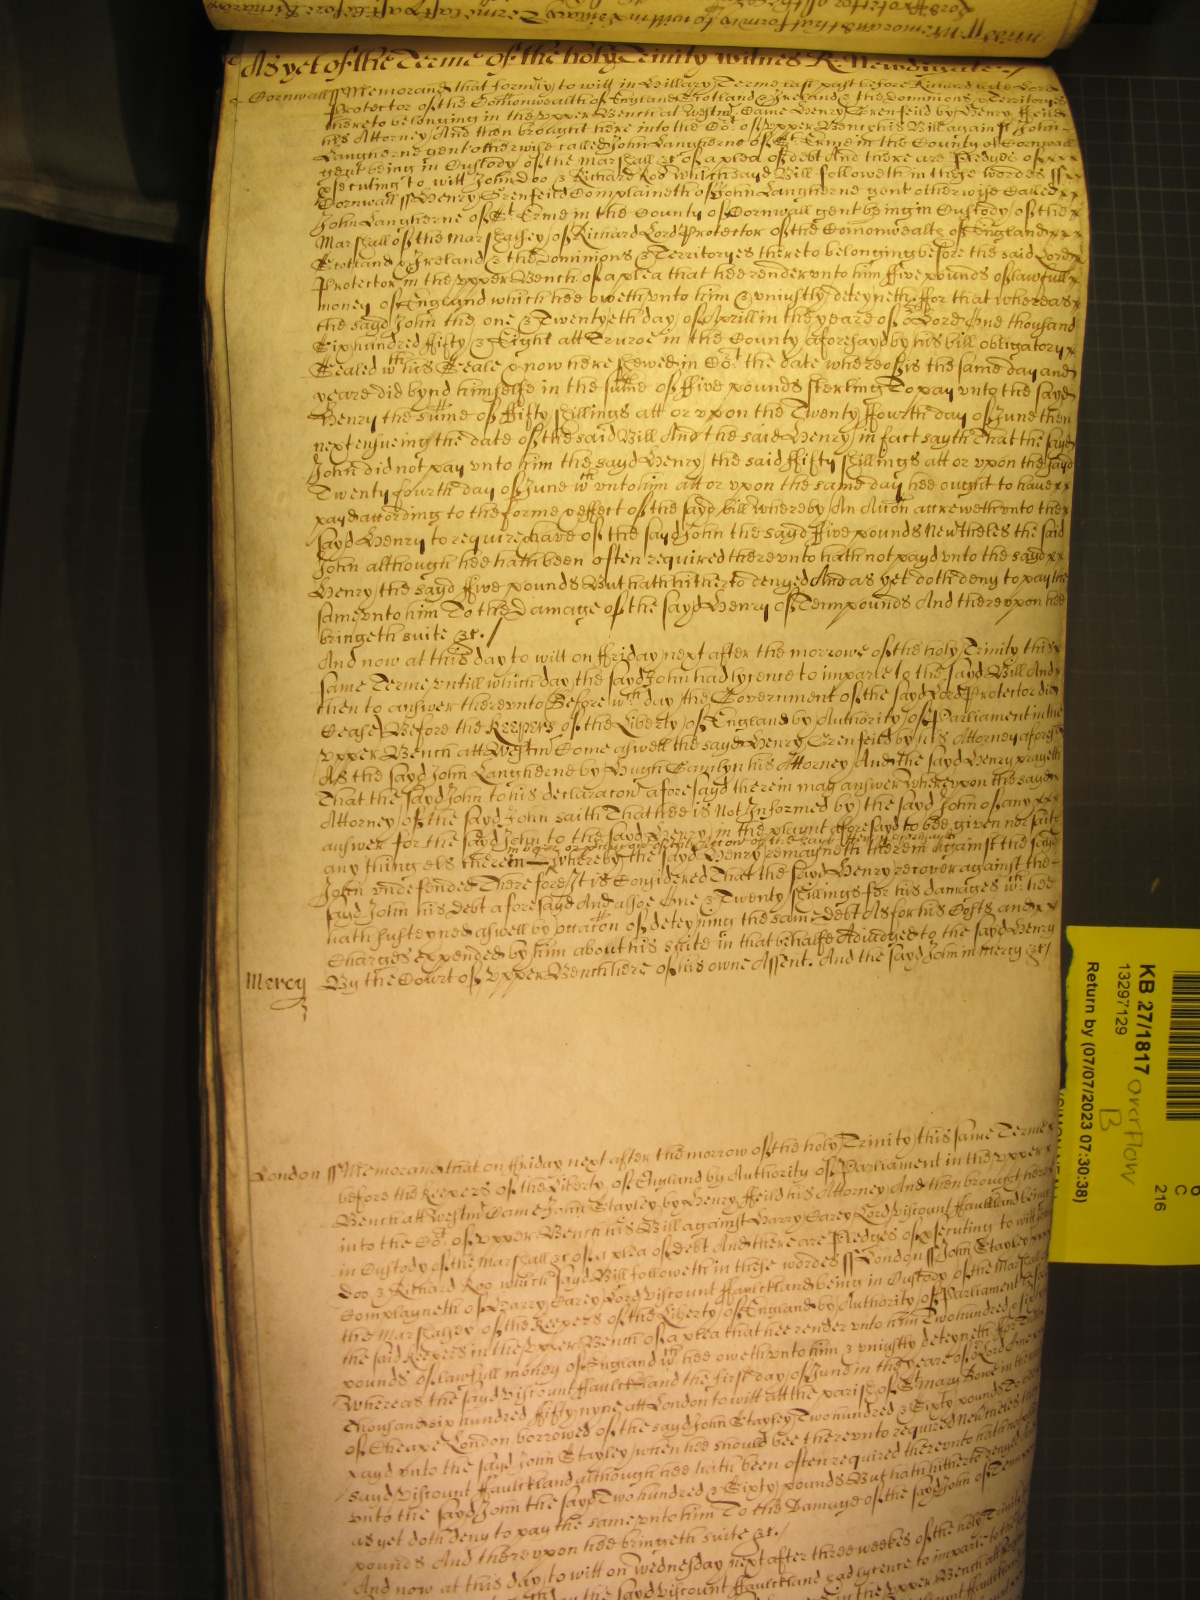 As yet of the Terme of the holy Trinity witnes R: Newdigate
Cornwall ss Memorand that formerly to witt in Hillary Terme last past before Richard late Lord
Protector of the Comonwealth of England Scotland & Ireland & the Dominions & Territories
thereto belonging in the upper Bench at Westm Came Henry Grenfeild by Henry ffeild
his Attorney And then brought here into the Cot of upper Bench his Bill against John
Langherne gent otherwise called John Langherne of St Erme in the County of Cornwall
gent being in Custody of the Marshall &c of a plea of debt And there are Pledges of
psecuting to witt John Doo & Richard Roo which sayd Bill followeth in these wordes ss
Cornwall ss Henry Grenfeild Complaineth of John Langherne gent otherwise Called
John Langherne of St Erme in the County of Cornwall gent being in Custody of the
Marshall of the Marshalsey of Richard Lord Protector of the Comonwealth of England
Scotland & Ireland & the Dominions & Territoryes thereto belonging before the said Lord
Protector in the upper Bench of a plea that hee render unto him ffive pounds of lawfull
money of England which hee oweth unto him & uniustly deteyneth ffor that whereas
the sayd John the one & Twentyeth day of Aprill in the yeare of or Lord One thousand
Six hundred ffifty & Eight att Truroe in the County aforesayd by his bill obligatory
Sealed wth his Seale & now here shewed in Cot the date whereof is the same day and
yeare did bynd himselfe in the sume of ffive pounds sterling To pay unto the sayd
Henry the sume of ffifty shillings att or upon the Twenty ffourth day of June then
next ensueing the date of the said Bill And the said Henry in fact sayth That the sayd
John did not pay unto him the sayd Henry the said ffifty shillings att or upon the sayd
Twenty fourth day of June wch unto him att or upon the same day hee ought to have
payd according to the forme & effect of the sayd bill whereby An Accon accreweth unto the
sayd Henry to require & have of the sayd John the sayd ffive pounds Nevtheles the said
John although hee hath been often required thereunto hath not payd unto the sayd
Henry the sayd ffive pounds But hath hitherto denyed And as yet doth deny to pay the
same unto him To the Damage of the sayd Henry of Tenn pounds And thereupon hee
bringeth suite &c.
And now at this day to witt on ffriday next after the morrowe of the holy Trinity this
same Terme untill which day the sayd John had lycence to imparle to the sayd Bill And
then to answer thereunto Before wch day the Government of the sayd Lord Protector did
Cease Before the Keepers of the Liberty of England by Authority of Parliament in the
upper Bench att Westm Come aswell the sayd Henry Grenfeild by his Attorney aforesd
As the sayd John Langherne by Hugh his Attorney And the sayd Henry prayeth
That the sayd John to his declaracon aforesayd therein may answer Whereupon the sayd
Attorney of the sayd John saith That hee is Not Informed by the sayd John of any
answer for the sayd John to the sayd Henry in the playnt aforesayd to bee given nor saith
any thing els therein whereby the sayd Henry remayneth therein Against the sayd
John undefended Therefore It is Considered That the sayd Henry recover against the
sayd John his Debt aforesayd And alsoe One & Twenty shillings for his damages wch hee
hath susteyned aswell by occacon of deteyning the same debt As for his Costs and
Charges expended by him about his suite in that behalfe Adiudged to the sayd Henry
Mercy By the Court of upper Bench here of his owne Assent. And the sayd John in Mercy &c
London ss Memorand that on ffriday next after the morrow of the holy Trinity this same Terme
before the Keepers of the Liberty of England by Authority of Parliament in the upper
Bench att Westm Came John Stayley by Henry ffeild his Attorney And then brought here
into the Cot of upper Bench his Bill against Harry Carey Lord Viscount ffaulkland being
in Custody of the Marshall &c of a plea of debt And there are Pledges of psecuting to witt John
Doo & Richard Roo which sayd Bill followeth in these wordes ss London ss John Stayley
Complayneth of Harry Carey Lord Viscount ffaulckland being in Custody of the Marshall of
the Marshalsey of the Keepers of the Liberty of England by Authority of Parliament before
the said Keepers in the upper Bench of a plea that hee render unto him Two hundred & Sixty
pounds of lawfull money of England wch hee oweth unto him & uniustly deteyneth for
Whereas the sayd Viscount ffaulckland the first day of June in the yeare of or Lord One
Thousand six hundred ffifty nyne att London to witt att the parish of St Mary Bowe in the
of Cheape London borrowed of the sayd John Stayley Two hundred & Sixty pounds To
payd unto the sayd John Stayley when hee should bee thereunto required Nevtheles the
sayd Viscount ffaulckland although hee hath been often required thereunto hath not
unto the sayd John the sayd Two hundred & Sixty pounds But hath hitherto denyed And
as yet doth deny to pay the same unto him To the Damage of the sayd John of Tenn
pounds And thereupon hee bringeth suite &c.
And now at this day to witt on Wednesday next after three weekes of the holy Trinity
the sayd Viscount ffaulckland had lycence to imparle to the
in the upper Bench att
KB 27/1817 overflow
13297129 B
Return by (07/07/2023 07:30:38)
216
C